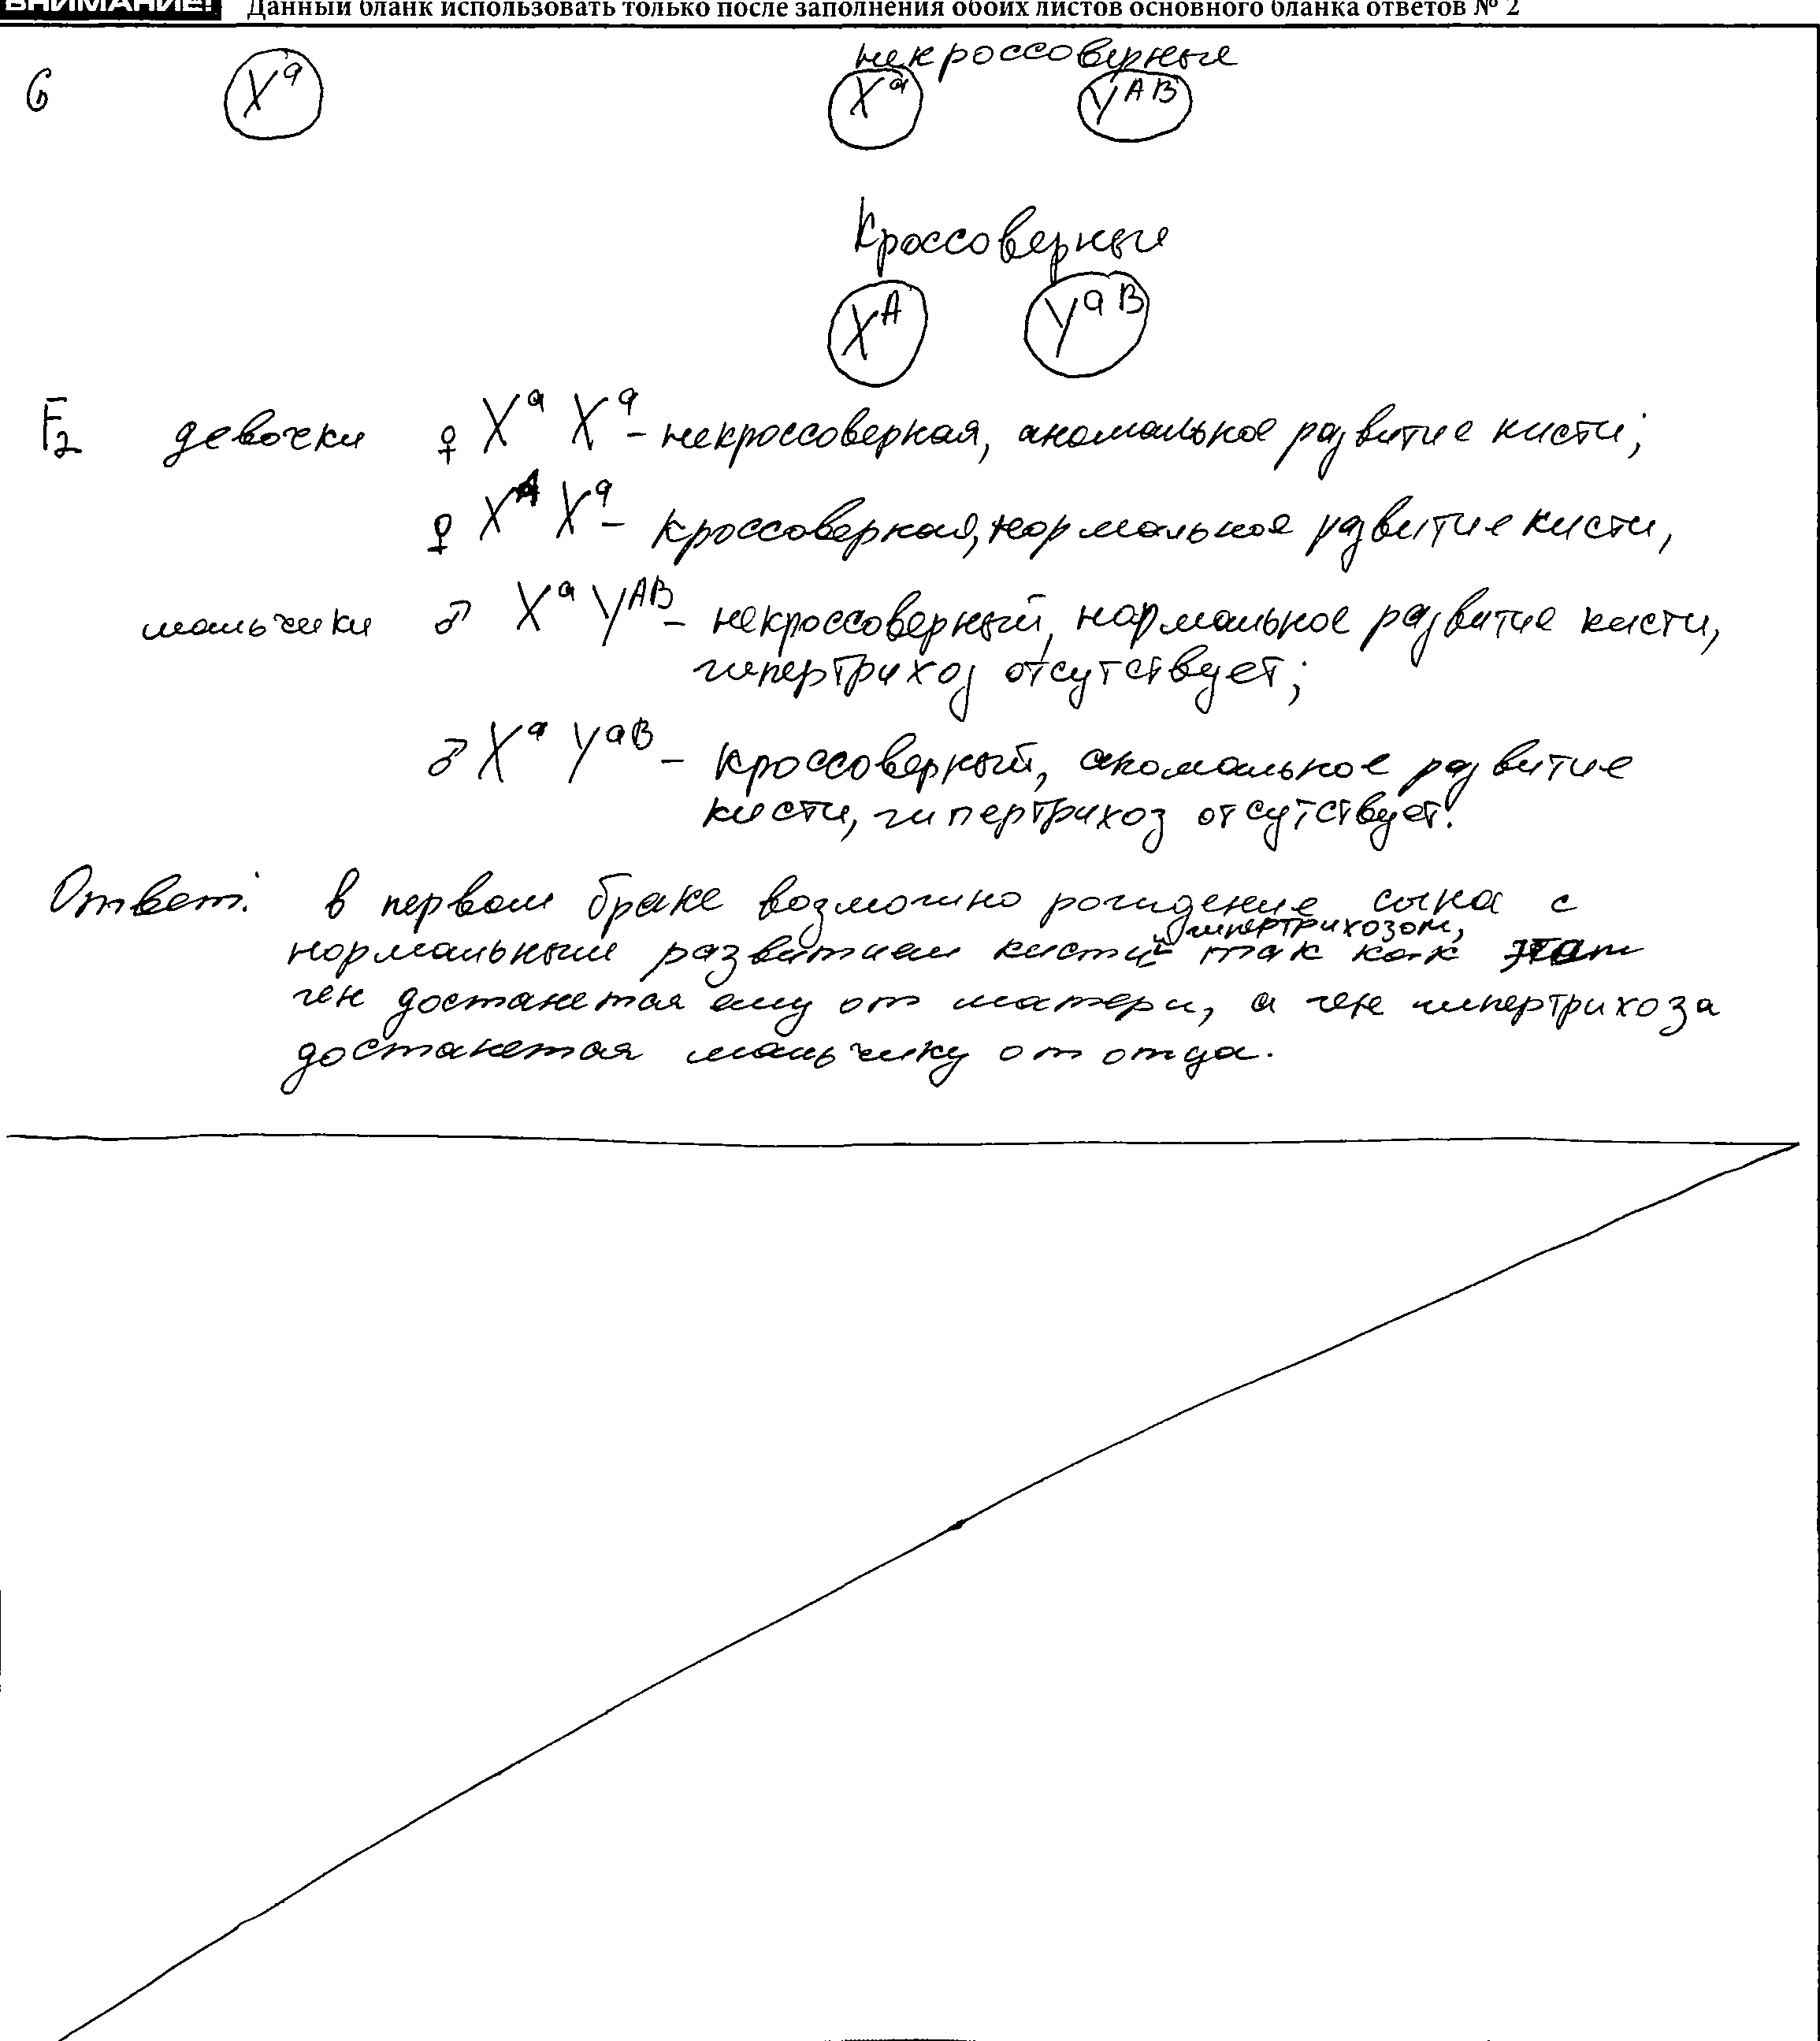 ВНИМАНИЕ! Данный бланк использовать только после заполнения обоих листов основного бланка ответов № 2
некроссоверные
G Xᵃ Xᵃ Yᴬᴮ
Кроссоверные
Xᴬ Yᵃᴮ
F₂ девочки ♀ Xᵃ Xᵃ – некроссоверная, аномальное развитие кисти;
♀ Xᴬ Xᵃ – кроссоверная, нормальное развитие кисти,
мальчики ♂ Xᵃ Yᴬᴮ – некроссоверный, нормальное развитие кисти,
гипертрихоз отсутствует;
♂ Xᵃ Yᵃᴮ – кроссоверный, аномальное развитие
кисти, гипертрихоз отсутствует.
Ответ: в первом браке возможно рождение сына с
гипертрихозом,
нормальным развитием кисти и так как этот
ген достанется ему от матери, а ген гипертрихоза
достанется мальчику от отца.